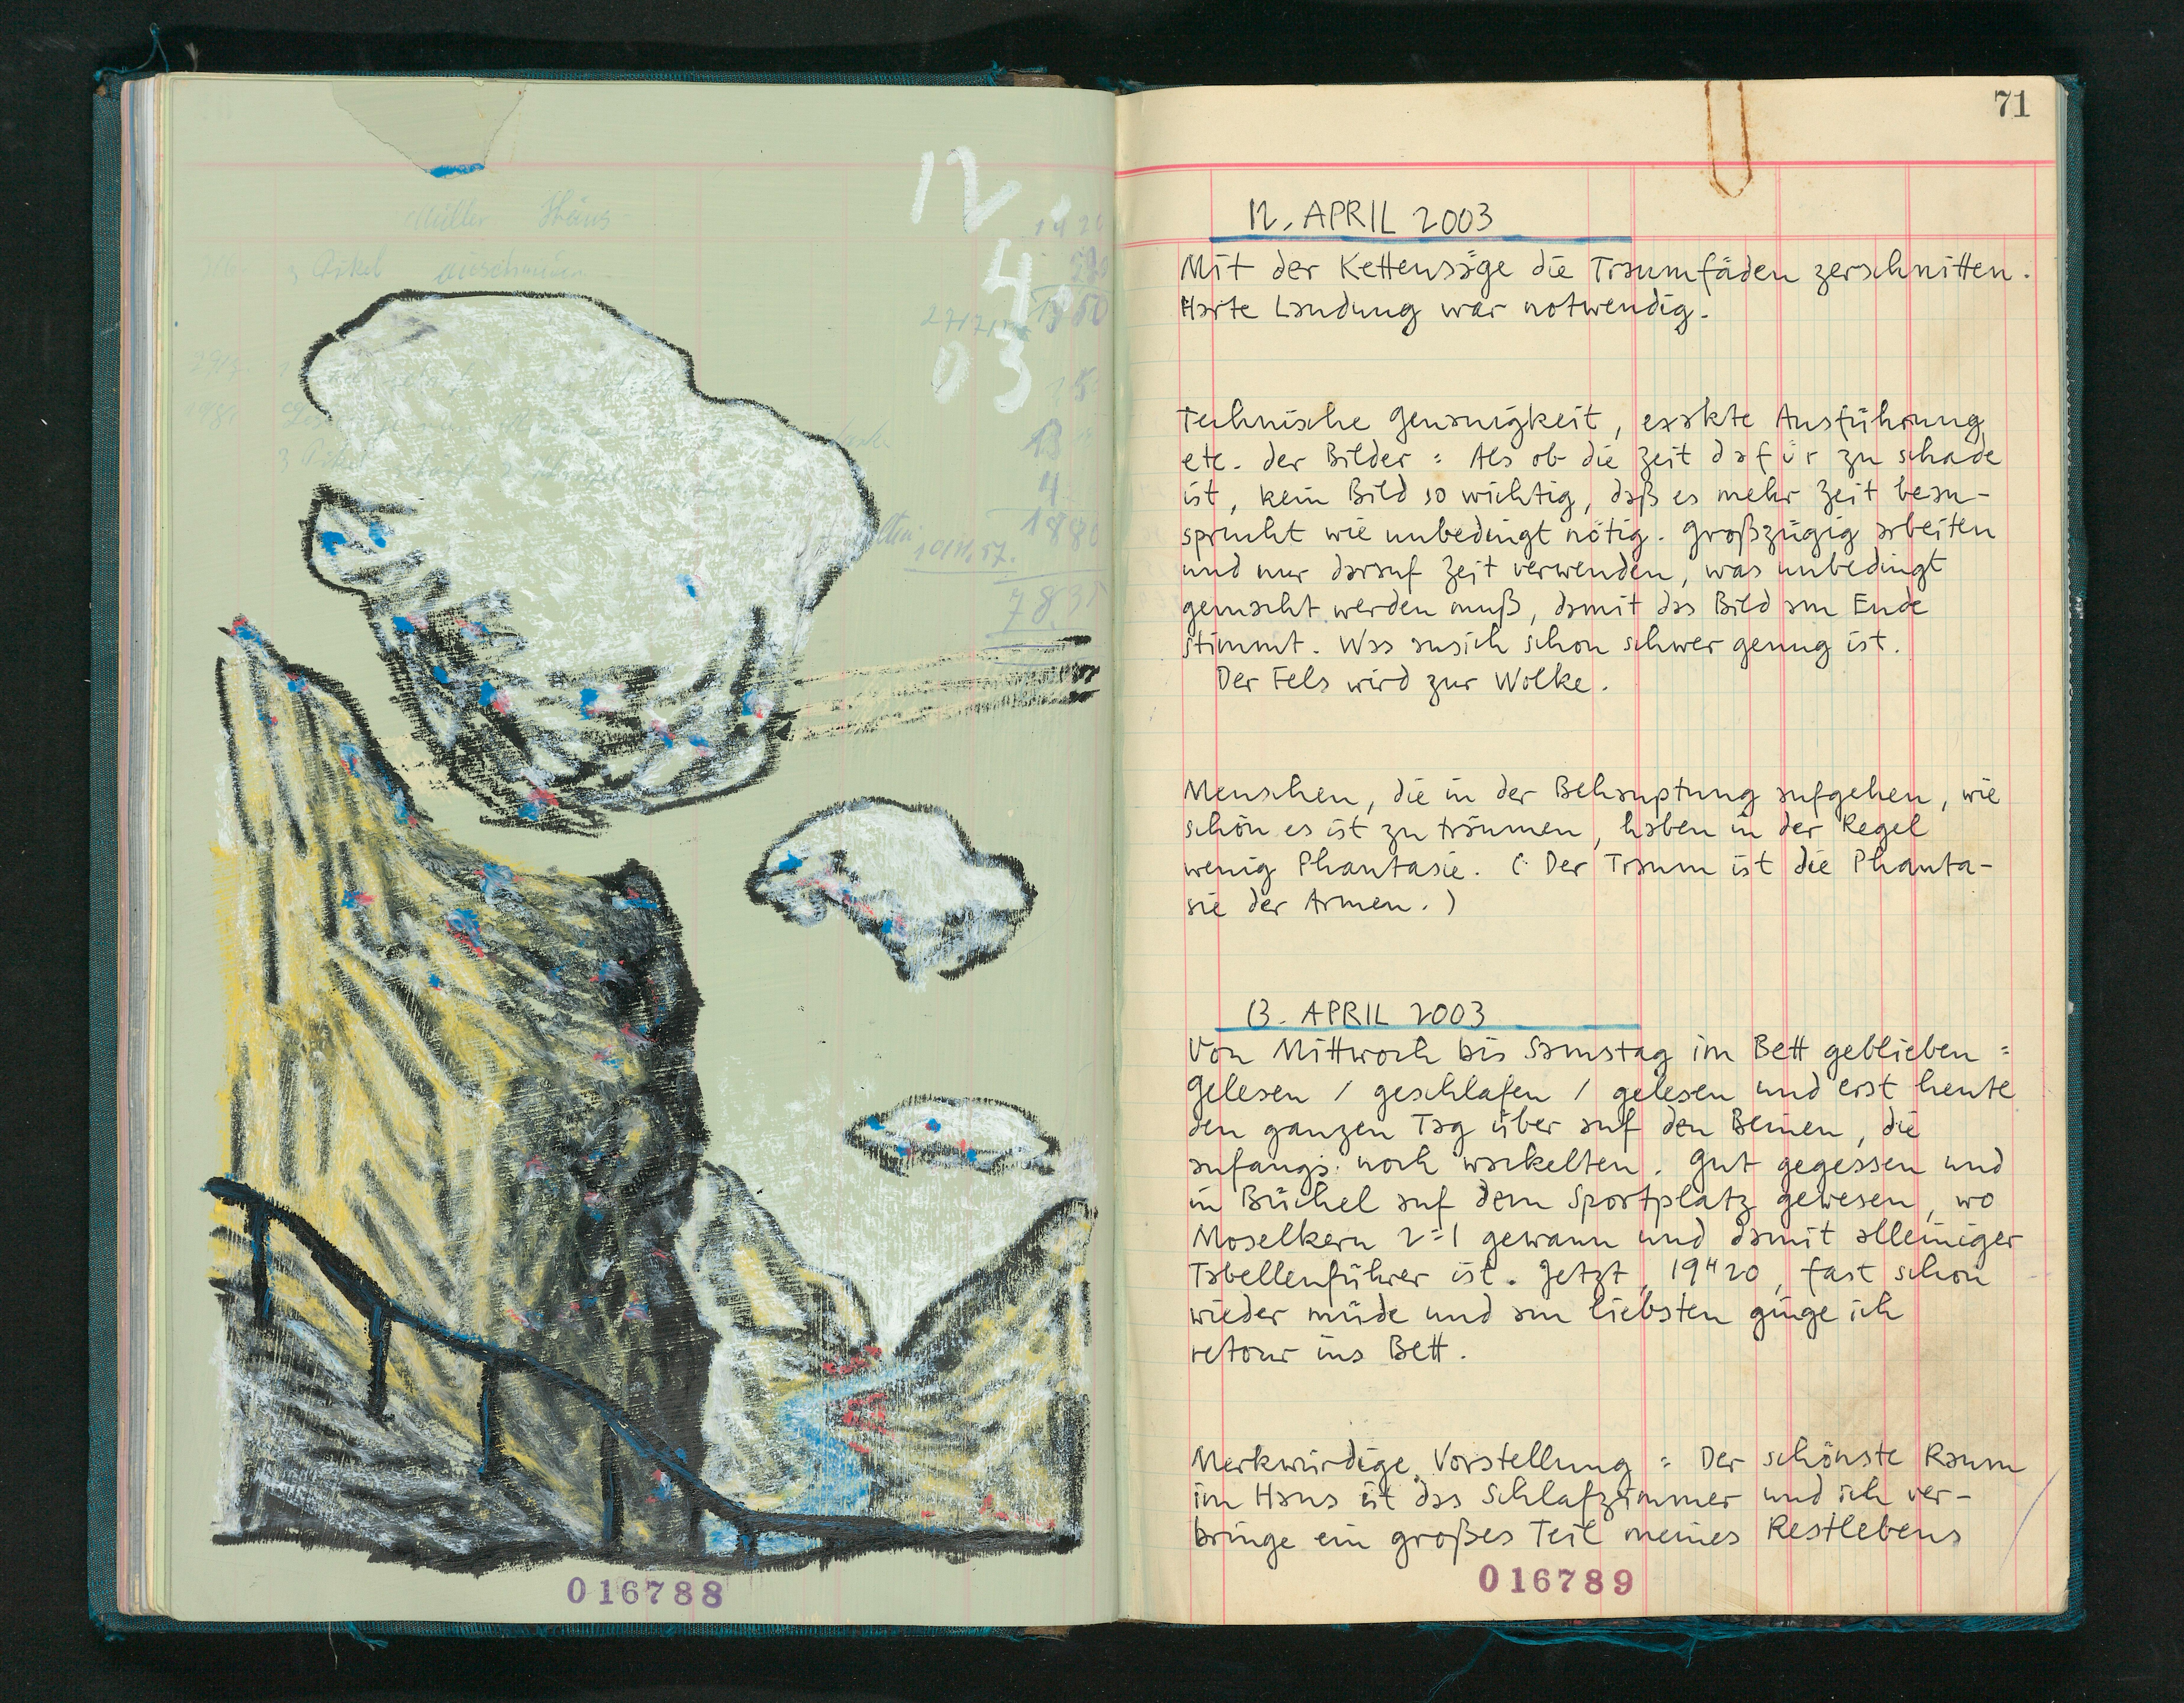 12
4
03
Müller Haus
13
4
1880
783
016788
71
12. APRIL 2003
Mit der Kettensäge die Traumfäden zerschnitten.
Harte Landung war notwendig.
Technische Genauigkeit, exakte Ausführung
etc. der Bilder: Als ob die Zeit dafür zu schade
ist, kein Bild so wichtig, daß es mehr Zeit bean-
sprucht wie unbedingt nötig. Großzügig arbeiten
und nur darauf Zeit verwenden, was unbedingt
gemacht werden muß, damit das Bild am Ende
stimmt. Was ansich schon schwer genug ist.
Der Fels wird zur Wolke.
Menschen, die in der Behauptung aufgehen, wie
schön es ist zu träumen, haben in der Regel
wenig Phantasie. (: Der Traum ist die Phanta-
sie der Armen.)
13. APRIL 2003
Von Mittwoch bis Samstag im Bett geblieben:
Gelesen / geschlafen / gelesen und erst heute
den ganzen Tag über auf den Beinen, die
anfangs noch wackelten. Gut gegessen und
in Büchel auf dem Sportplatz gewesen, wo
Moselkern 2:1 gewann und damit alleiniger
Tabellenführer ist. Jetzt, 19"20, fast schon
wieder müde und am liebsten ginge ich
retour ins Bett.
Merkwürdige Vorstellung: Der schönste Raum
im Haus ist das Schlafzimmer und ich ver-
bringe ein großes Teil meines Restlebens
016789